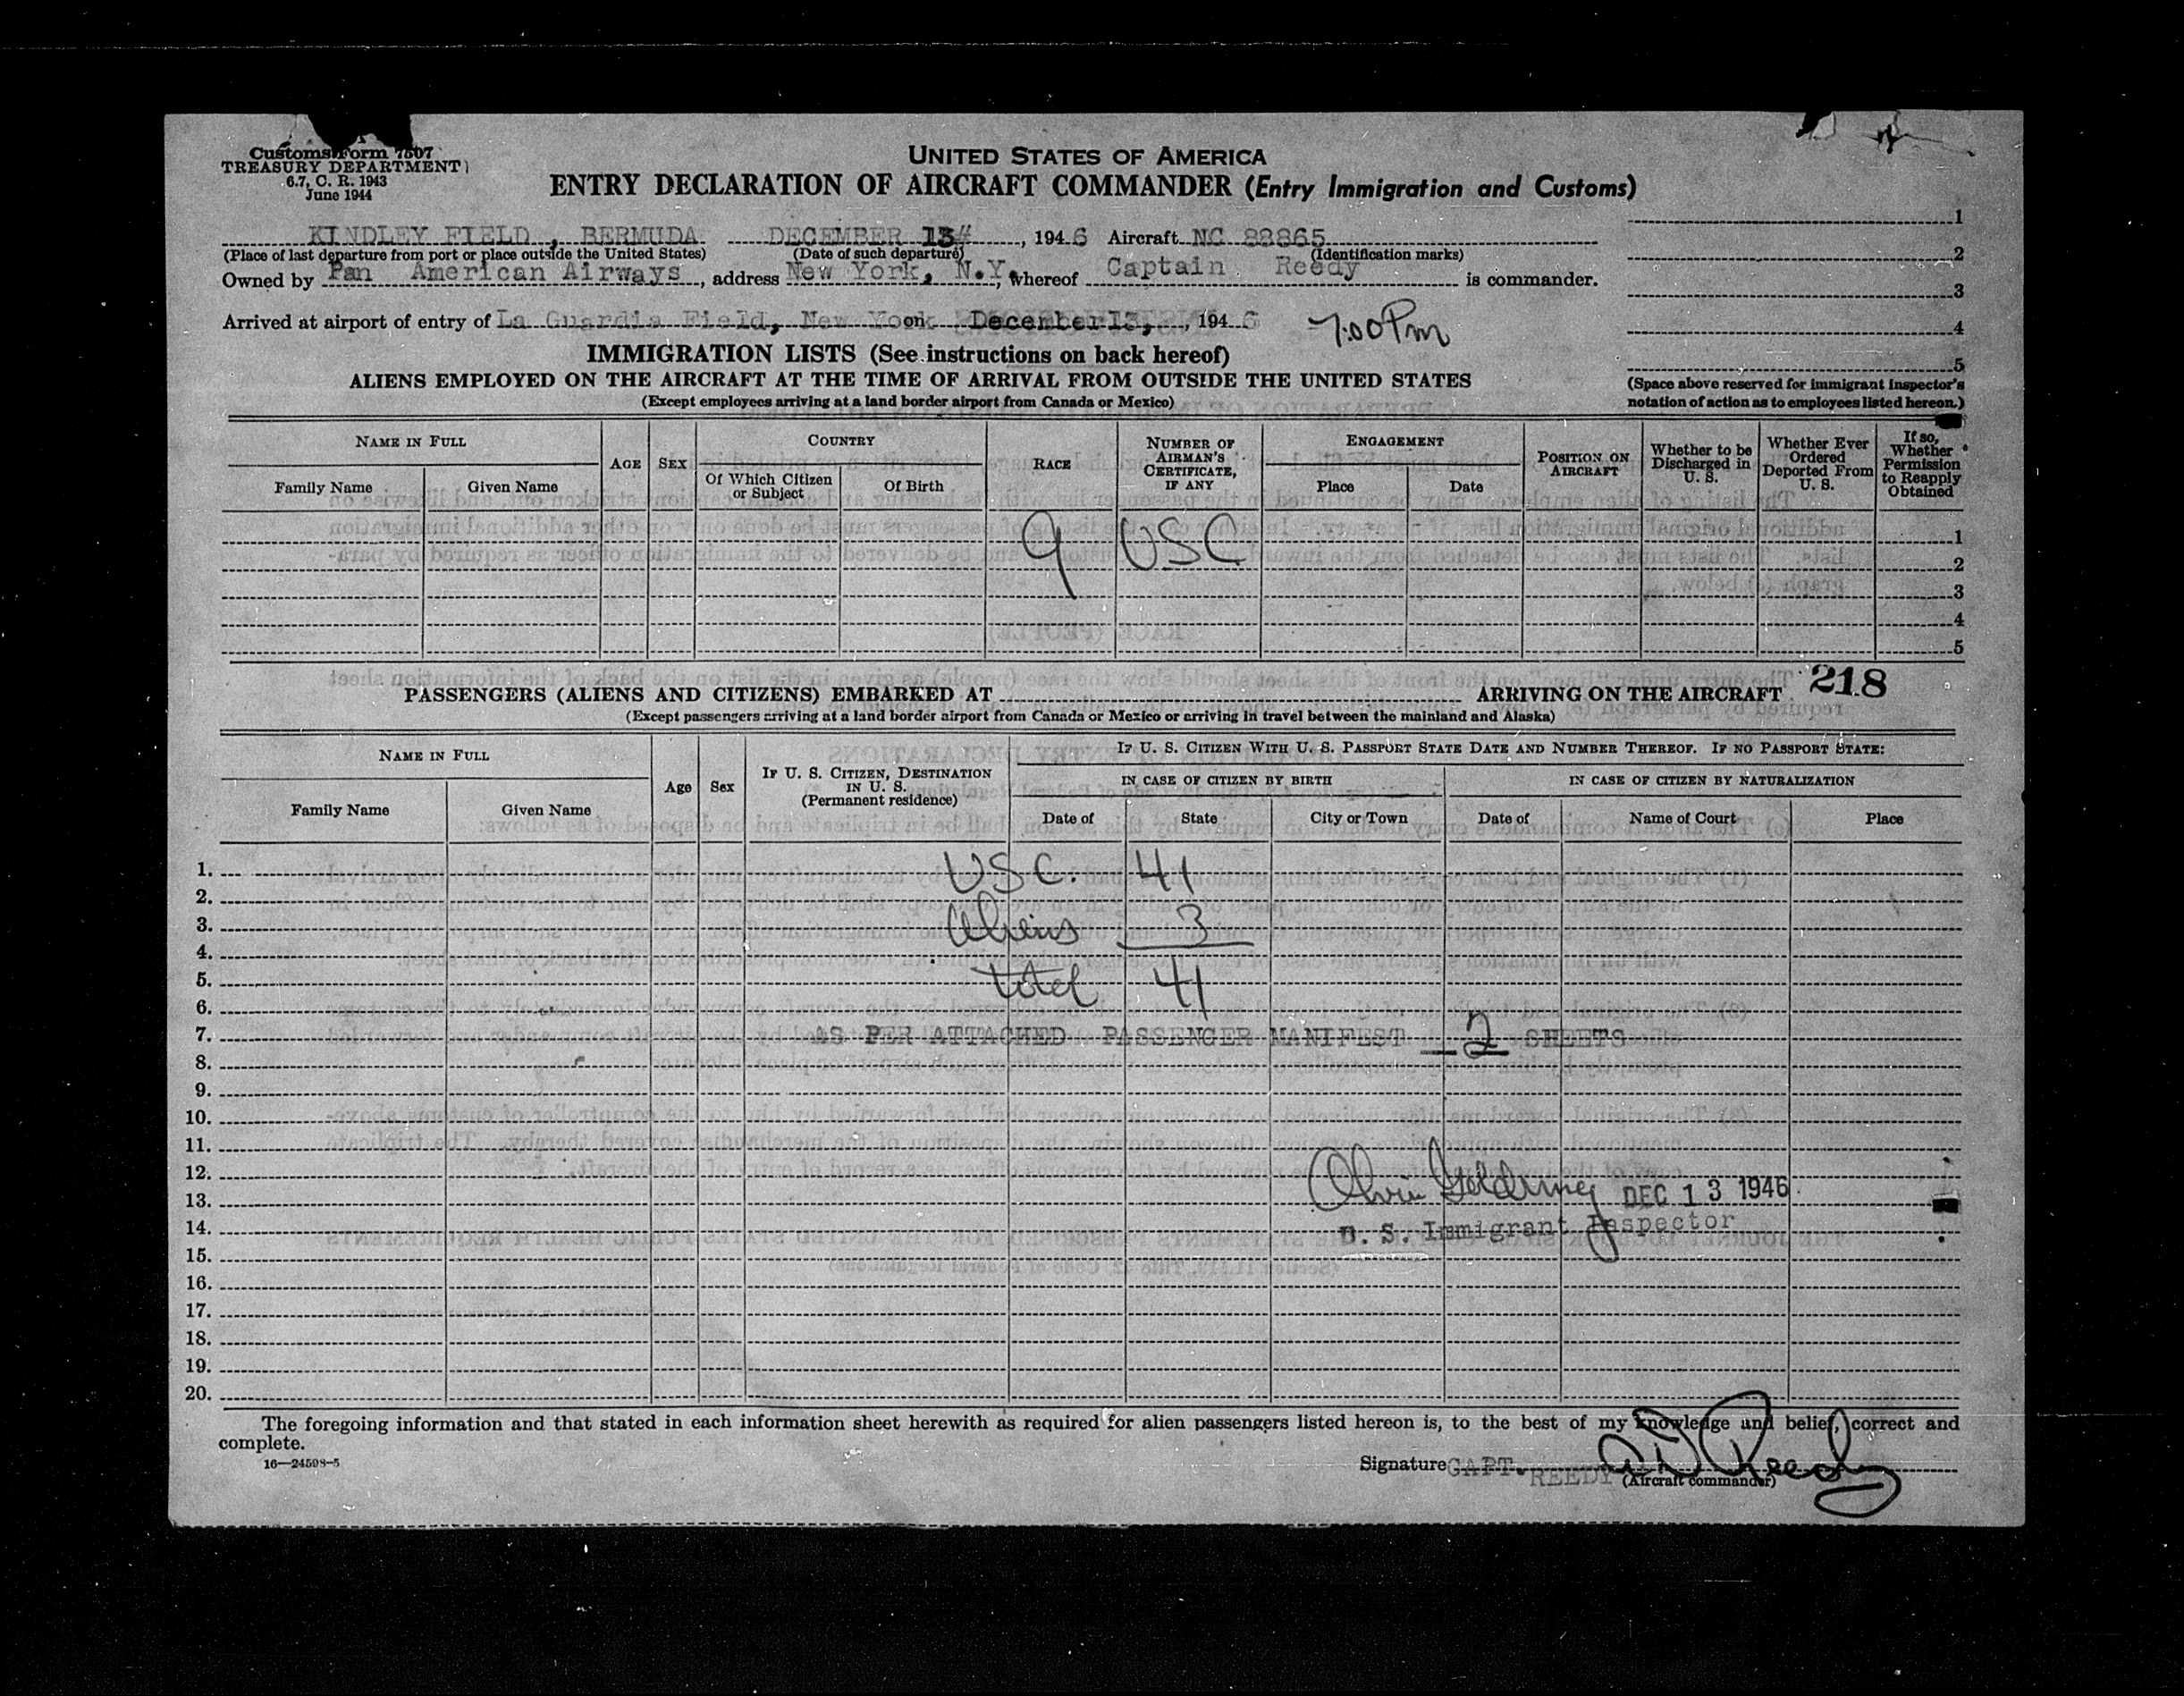 Customs Form 7507
TREASURY DEPARTMENT
6.7, C. R. 1943
June 1944
UNITED STATES OF AMERICA
ENTRY DECLARATION OF AIRCRAFT COMMANDER (Entry Immigration and Customs)
KINDLEY FIELD, BERMUDA DECEMBER 13th, 1946 Aircraft NC 88865
(Place of last departure from port or place outside the United States) (Date of such departure) (Identification marks)
Owned by Pan American Airways, address New York, N.Y., whereof Captain Reedy is commander.
Arrived at airport of entry of La Guardia Field, New York on December 13, 1946 7:00 Pm
1
2
3
4
5
(Space above reserved for immigrant inspector's
notation of action as to employees listed hereon.)
IMMIGRATION LISTS (See instructions on back hereof)
ALIENS EMPLOYED ON THE AIRCRAFT AT THE TIME OF ARRIVAL FROM OUTSIDE THE UNITED STATES
(Except employees arriving at a land border airport from Canada or Mexico)
NAME IN FULL
Family Name Given Name
AGE SEX
COUNTRY
Of Which Citizen or Subject Of Birth
RACE
NUMBER OF AIRMAN'S CERTIFICATE, IF ANY
ENGAGEMENT
Place Date
POSITION ON AIRCRAFT
Whether to be Discharged in U. S.
Whether Ever Ordered Deported From U. S.
If so, Whether Permission to Reapply Obtained
9 USC
1
2
3
4
5
PASSENGERS (ALIENS AND CITIZENS) EMBARKED AT ARRIVING ON THE AIRCRAFT 218
(Except passengers arriving at a land border airport from Canada or Mexico or arriving in travel between the mainland and Alaska)
NAME IN FULL
Family Name Given Name
Age Sex
IF U. S. CITIZEN, DESTINATION IN U. S. (Permanent residence)
IF U. S. CITIZEN WITH U. S. PASSPORT STATE DATE AND NUMBER THEREOF. IF NO PASSPORT STATE:
IN CASE OF CITIZEN BY BIRTH IN CASE OF CITIZEN BY NATURALIZATION
Date of State City or Town Date of Name of Court Place
1. USC. 41
2.
3. Aliens 3
4.
5. total 41
6.
7. AS PER ATTACHED PASSENGER MANIFEST 2 SHEETS
8.
9.
10.
11.
12.
13. DEC 13 1946
14. U. S. Immigrant Inspector
15.
16.
17.
18.
19.
20.
The foregoing information and that stated in each information sheet herewith as required for alien passengers listed hereon is, to the best of my knowledge and belief, correct and
complete.
16—24598-5
Signature CAPT. REEDY Reedy
(Aircraft commander)